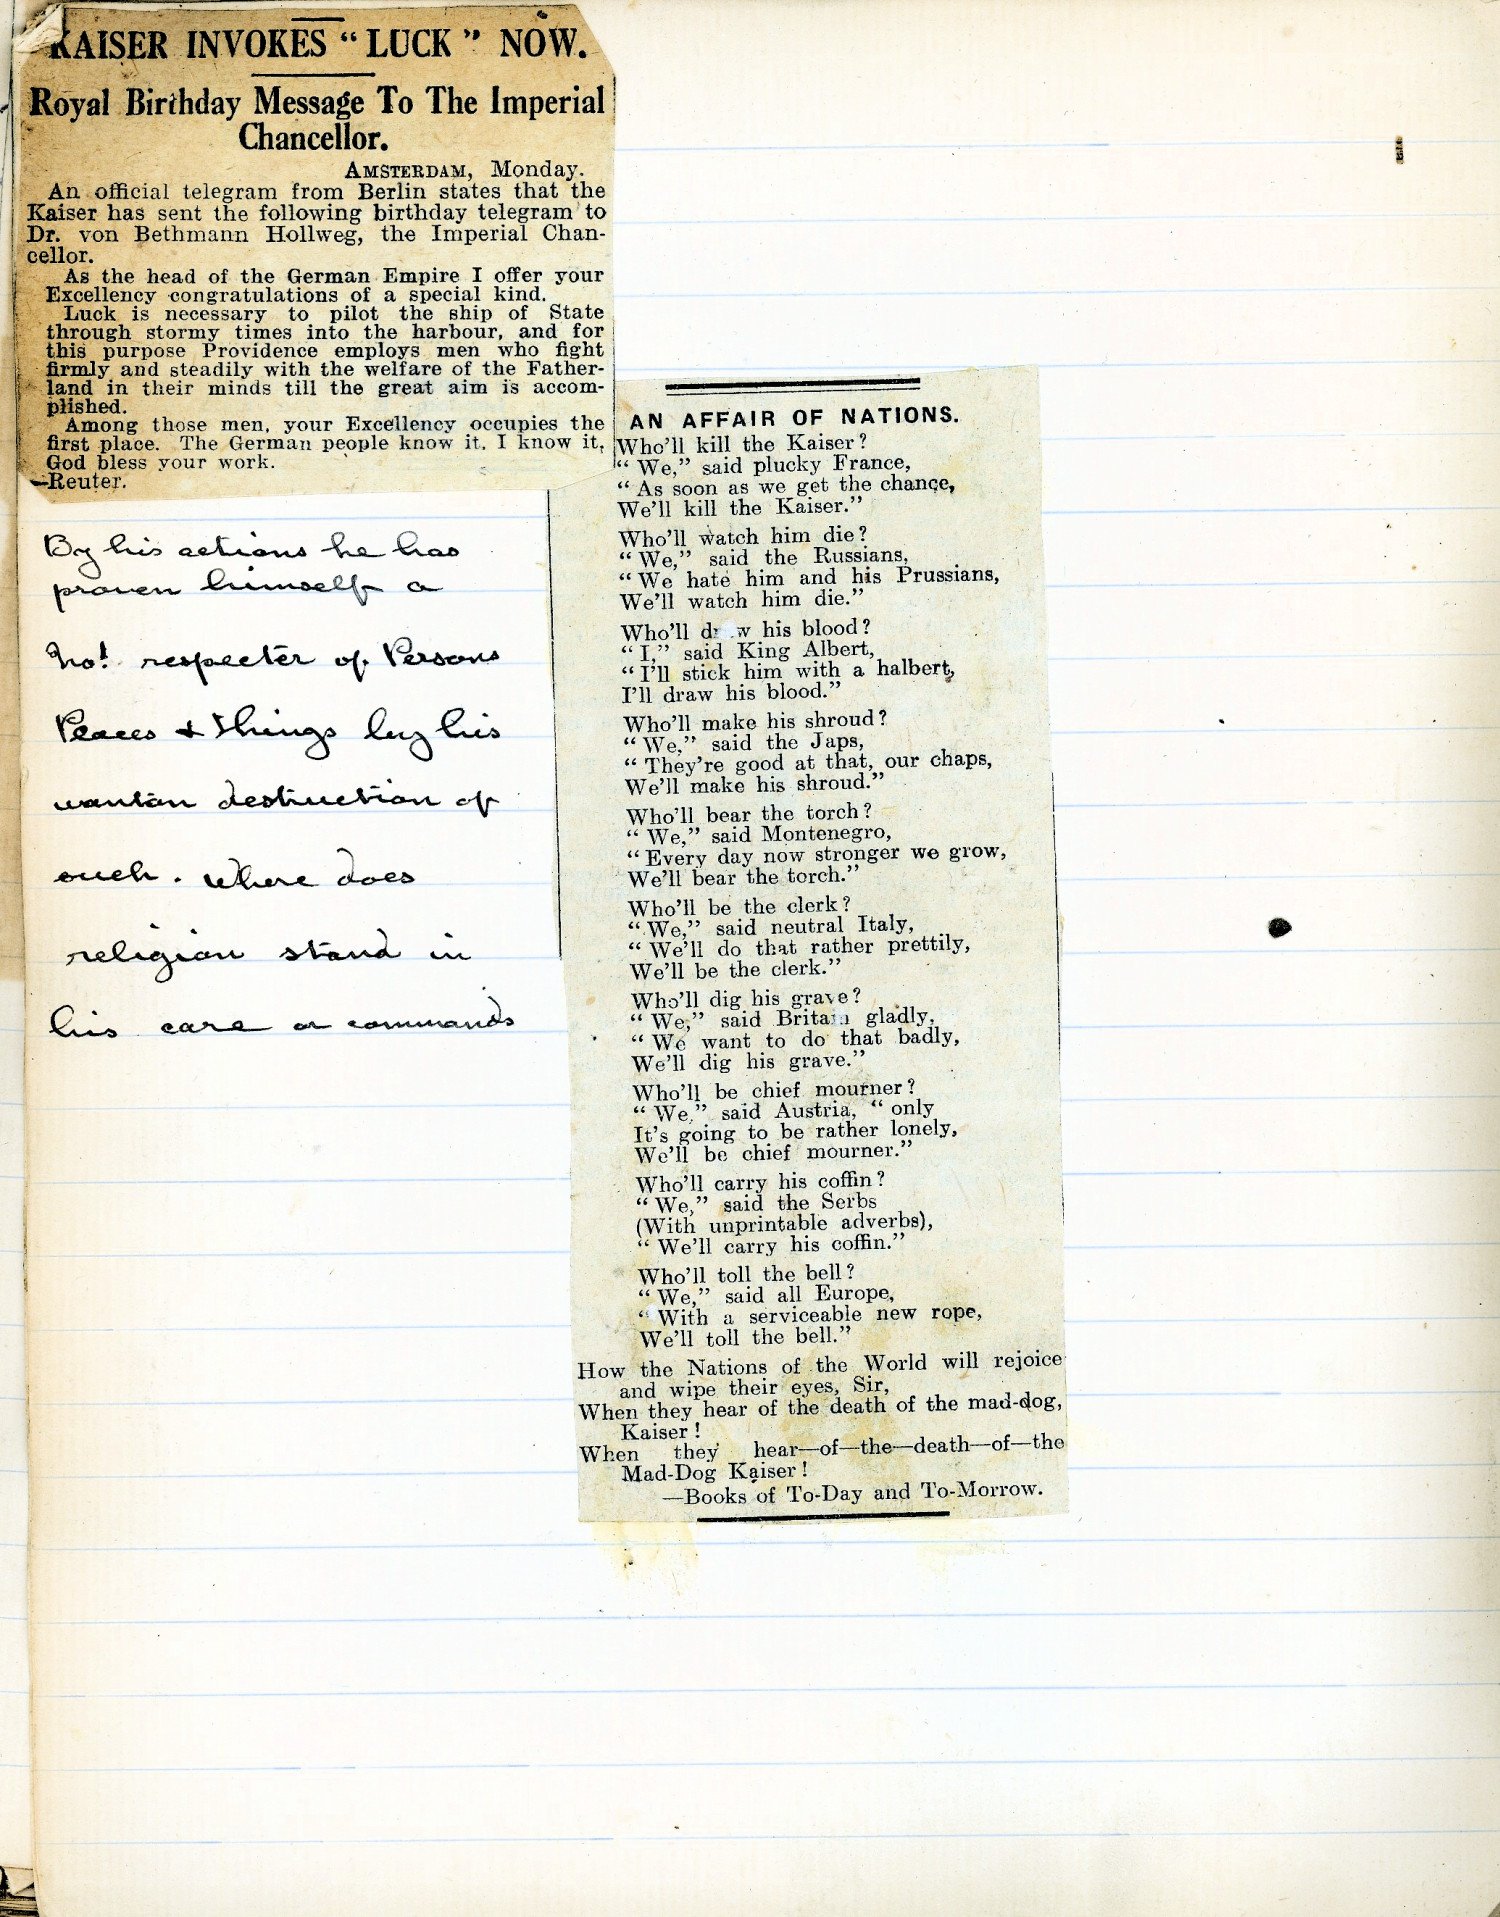 KAISER INVOKES "LUCK" NOW.
Royal Birthday Message To The Imperial
Chancellor.
AMSTERDAM, Monday.
An official telegram from Berlin states that the
Kaiser has sent the following birthday telegram to
Dr. von Bethmann Hollweg, the Imperial Chan-
cellor.
As the head of the German Empire I offer your
Excellency congratulations of a special kind.
Luck is necessary to pilot the ship of State
through stormy times into the harbour, and for
this purpose Providence employs men who fight
firmly and steadily with the welfare of the Father-
land in their minds till the great aim is accom-
plished.
Among those men, your Excellency occupies the
first place. The German people know it. I know it,
God bless your work.
—Reuter.
By his actions he has
proven himself a
No! respecter of Persons
Places & things by his
wanton destruction of
such. Where does
religion stand in
his care or commands
AN AFFAIR OF NATIONS.
Who'll kill the Kaiser?
"We," said plucky France,
"As soon as we get the chance,
We'll kill the Kaiser."
Who'll watch him die?
"We," said the Russians,
"We hate him and his Prussians,
We'll watch him die."
Who'll draw his blood?
"I," said King Albert,
"I'll stick him with a halbert,
I'll draw his blood."
Who'll make his shroud?
"We," said the Japs,
"They're good at that, our chaps,
We'll make his shroud."
Who'll bear the torch?
"We," said Montenegro,
"Every day now stronger we grow,
We'll bear the torch."
Who'll be the clerk?
"We," said neutral Italy,
"We'll do that rather prettily,
We'll be the clerk."
Who'll dig his grave?
"We," said Britain gladly,
"We want to do that badly,
We'll dig his grave."
Who'll be chief mourner?
"We," said Austria, "only
It's going to be rather lonely,
We'll be chief mourner."
Who'll carry his coffin?
"We," said the Serbs
(With unprintable adverbs),
"We'll carry his coffin."
Who'll toll the bell?
"We," said all Europe,
"With a serviceable new rope,
We'll toll the bell."
How the Nations of the World will rejoice
and wipe their eyes, Sir,
When they hear of the death of the mad-dog,
Kaiser!
When they hear—of—the—death—of—the
Mad-Dog Kaiser!
—Books of To-Day and To-Morrow.